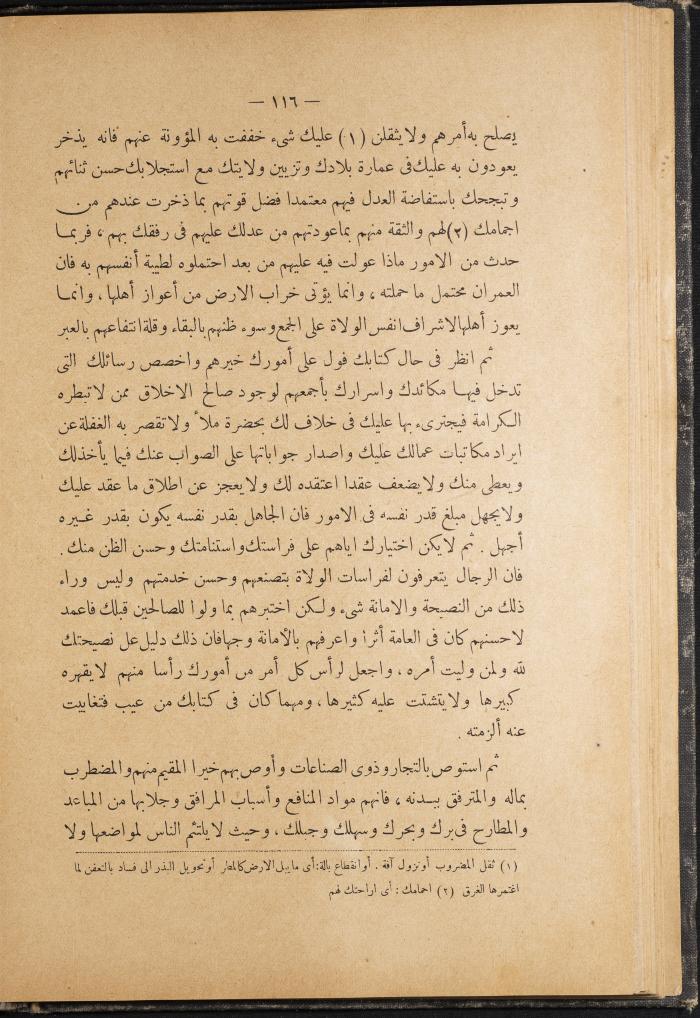 — ١١٦ —
يصلح به أمرهم ولا يثقلن (١) عليك شىء خففت به المؤونة عنهم فانه يذخر
يعودون به عليك فى عمارة بلادك وتزيين ولايتك مع استجلابك حسن ثنائهم
وتبجحك باستفاضة العدل فيهم معتمدا فضل قوتهم بما ذخرت عندهم من
اجمامك (٢) لهم والثقة منهم بما عودتهم من عدلك عليهم فى رفقك بهم ، فربما
حدث من الامور ماذا عولت فيه عليهم من بعد احتملوه لطيبة أنفسهم به فان
العمران محتمل ما حملته ، وانما يؤتى خراب الارض من أعواز أهلها ، وانما
يعوز أهلها لاشراف انفس الولاة على الجمع وسوء ظنهم بالبقاء وقلة انتفاعهم بالعبر
ثم انظر فى حال كتابك فول على أمورك خيرهم واخصص رسائلك التى
تدخل فيها مكائدك واسرارك بأجمعهم لوجود صالح الاخلاق ممن لا تبطره
الكرامة فيجترىء بها عليك فى خلاف لك بحضرة ملأ ولا تقصر به الغفلة عن
ايراد مكاتبات عمالك عليك واصدار جواباتها على الصواب عنك فيما يأخذ لك
ويعطى منك ولا يضعف عقدا اعتقده لك ولا يعجز عن اطلاق ما عقد عليك
ولا يجهل مبلغ قدر نفسه فى الامور فان الجاهل بقدر نفسه يكون بقدر غيره
أجهل . ثم لا يكن اختيارك اياهم على فراستك واستنامتك وحسن الظن منك .
فان الرجال يتعرفون لفراسات الولاة بتصنعهم وحسن خدمتهم وليس وراء
ذلك من النصيحة والامانة شىء ولكن اختبرهم بما ولوا للصالحين قبلك فاعمد
لاحسنهم كان فى العامة أثرا واعرفهم بالأمانة وجها فان ذلك دليل عل نصيحتك
لله ولمن وليت أمره ، واجعل لرأس كل أمر من أمورك رأسا منهم لا يقهره
كبيرها ولا يتشتت عليه كثيرها ، ومهما كان فى كتابك من عيب فتغابيت
عنه ألزمته .
ثم استوص بالتجار وذوى الصناعات وأوص بهم خيرا المقيم منهم والمضطرب
بماله والمترفق ببدنه ، فانهم مواد المنافع وأسباب المرافق وجلابها من المباعد
والمطارح فى برك وبحرك وسهلك وجبلك ، وحيث لا يلتئم الناس لمواضعها ولا
(١) ثقل المضروب أو نزول آفة . أو انقطاع بالة : أى ما يبل الارض كالمطر أو تحويل البذر الى فساد بالتعفن لما
اغتمرها الغرق (٢) اجمامك : أى اراحتك لهم